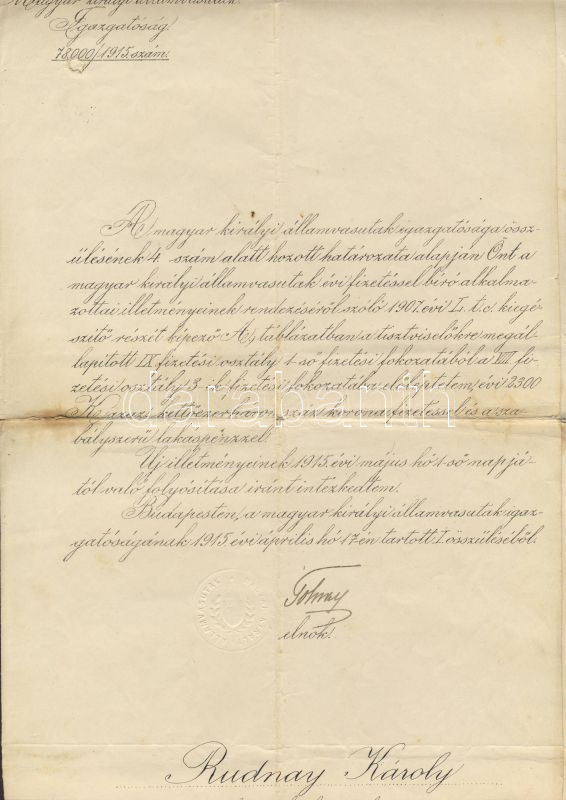 Magyar királyi államvasutak.
Igazgatóság.
78.000/1915. szám.
A magyar királyi államvasutak igazgatósága össz-
ülésének 4. szám alatt hozott határozata alapján Önt a
magyar királyi államvasutak évi fizetéssel bíró alkalma-
zottai illetményeinek rendezéséről szóló 1907. évi L. t. c. kiegé-
szítő részét képező A) táblázatban a tisztviselőkre megál-
lapított IX fizetési osztály 1-ső fizetési fokozatából a VIII fi-
zetési osztály 3-ik fizetési fokozatába előléptetem, évi 2300
K, azaz kettőezerháromszáz korona fizetéssel és a sza-
bályszerű lakáspénzzel.
Új illetményeinek 1915. évi május hó 1-ső napjá-
tól való folyósítása iránt intézkedtem.
Budapesten, a magyar királyi államvasutak igaz-
gatóságának 1915 évi április hó 17-én tartott I. összüléséből.
Tolnay
elnök.
Rudnay Károly
darabanth